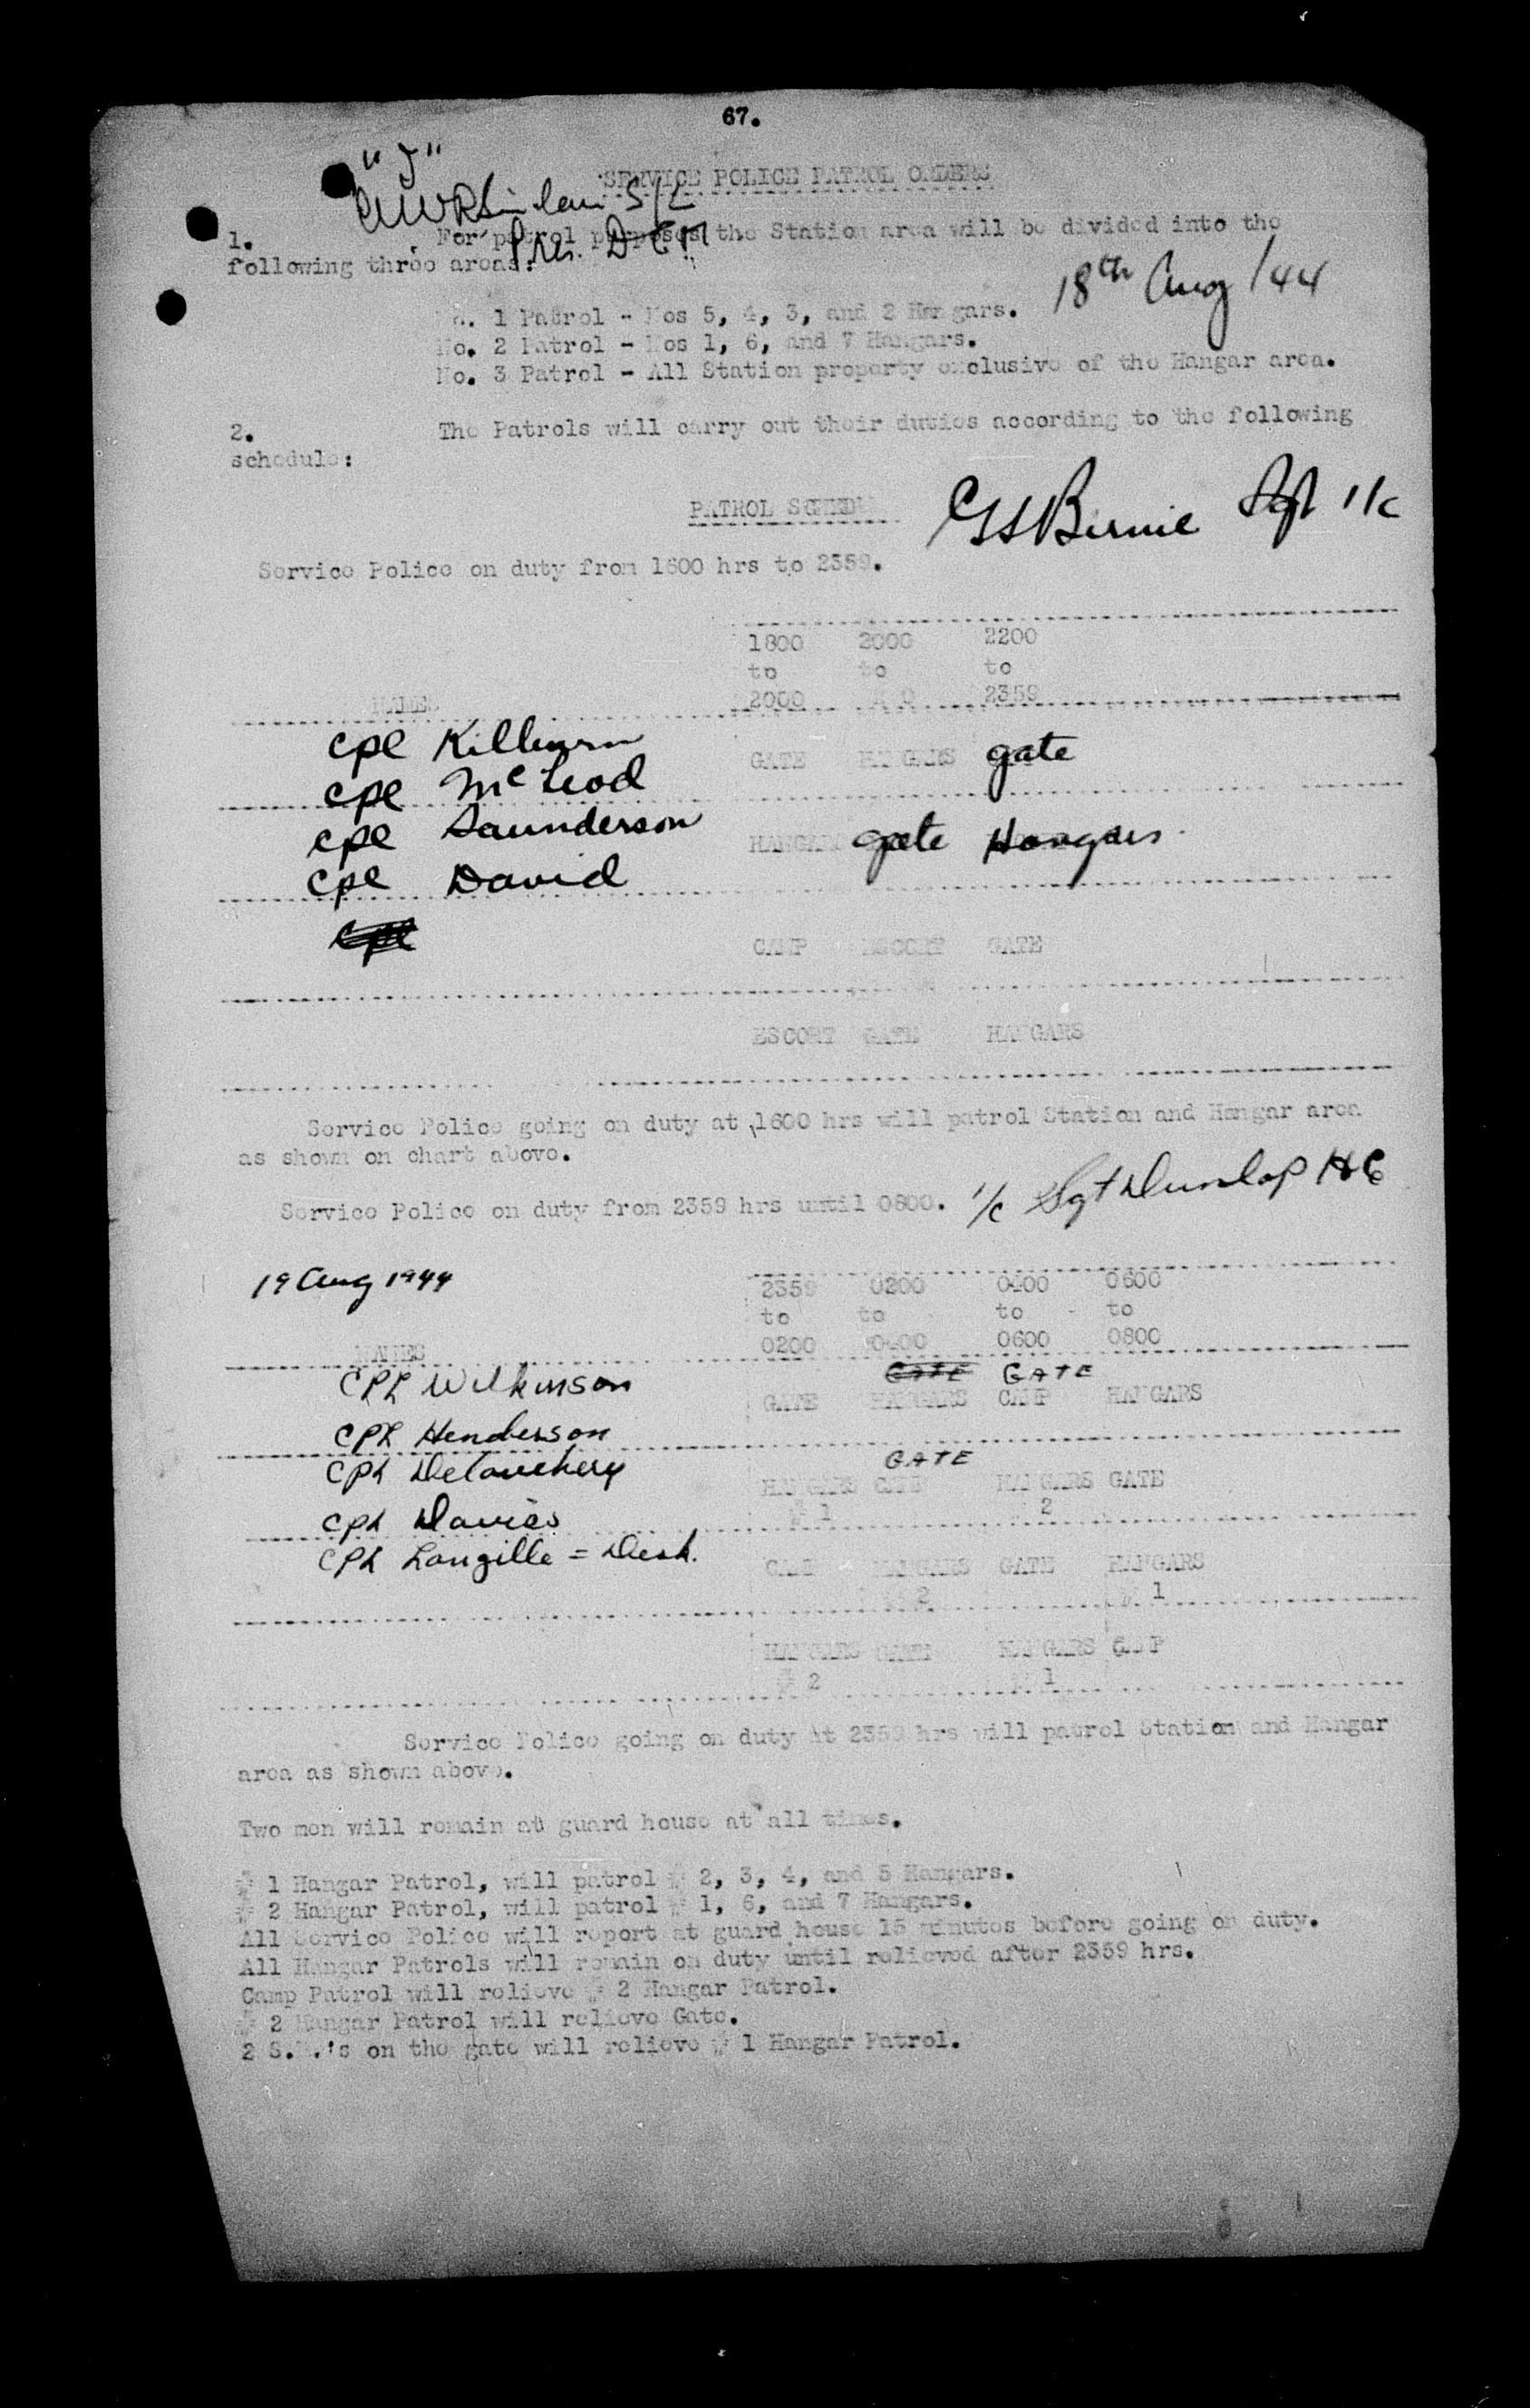 67.
"J"
SERVICE POLICE PATROL ORDERS
S/L
1. For patrol purposes the Station area will be divided into the
Pres. D.C.M.
following three areas:
18th Aug/44
No. 1 Patrol - Nos 5, 4, 3, and 2 Hangars.
No. 2 Patrol - Nos 1, 6, and 7 Hangars.
No. 3 Patrol - All Station property exclusive of the Hangar area.
2. The Patrols will carry out their duties according to the following
schedule:
PATROL SCHEDU
Birnie Sgt I/c
Service Police on duty from 1600 hrs to 2359.
1800 2000 2200
to to to
NAMES 2000 2359
Cpl
GATE HANGARS gate
Cpl McLeod
Cpl Saunderson
HANGARS gate Hangars
Cpl David
Cpl
CAMP ESCORT GATE
ESCORT GATE HANGARS
Service Police going on duty at 1600 hrs will patrol Station and Hangar area
as shown on chart above.
Service Police on duty from 2359 hrs until 0800. I/c Sgt Dunlop HC
19 Aug 1944
2359 0200 0400 0600
to to to to
NAMES 0200 0400 0600 0800
CPL Wilkinson GATE GATE
GATE HANGARS CAMP HANGARS
CPL Henderson
CPL Delouchery GATE
HANGARS GATE HANGARS GATE
CPL Davies # 1 # 2
CPL Langille = Desk.
CAMP HANGARS GATE HANGARS
# 2 # 1
HANGARS HANGARS CAMP
# 2 # 1
Service Police going on duty at 2359 hrs will patrol Station and Hangar
area as shown above.
Two men will remain at guard house at all times.
# 1 Hangar Patrol, will patrol # 2, 3, 4, and 5 Hangars.
# 2 Hangar Patrol, will patrol # 1, 6, and 7 Hangars.
All Service Police will report at guard house 15 minutes before going on duty.
All Hangar Patrols will remain on duty until relieved after 2359 hrs.
Camp Patrol will relieve # 2 Hangar Patrol.
# 2 Hangar Patrol will relieve Gate.
2 S.P.'s on the gate will relieve # 1 Hangar Patrol.